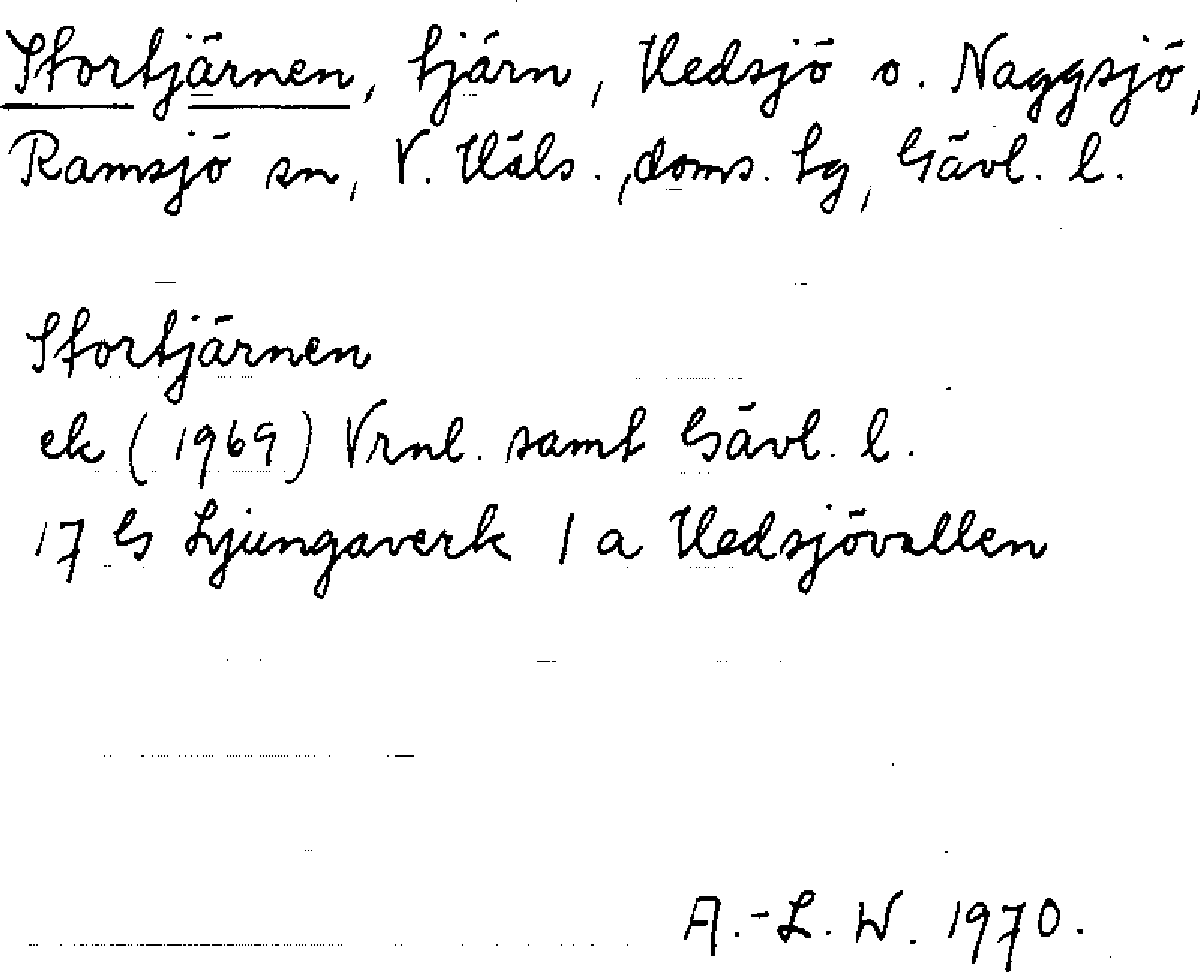 Stortjärnen, tjärn, Hedsjö o. Naggsjö,
Ramsjö sn, V. Häls. doms. tg, Gävl. l.
Stortjärnen
ek (1969) Vrml. samt Gävl. l.
17 G Ljungaverk 1 a Hedsjövallen
A.-L. W. 1970.